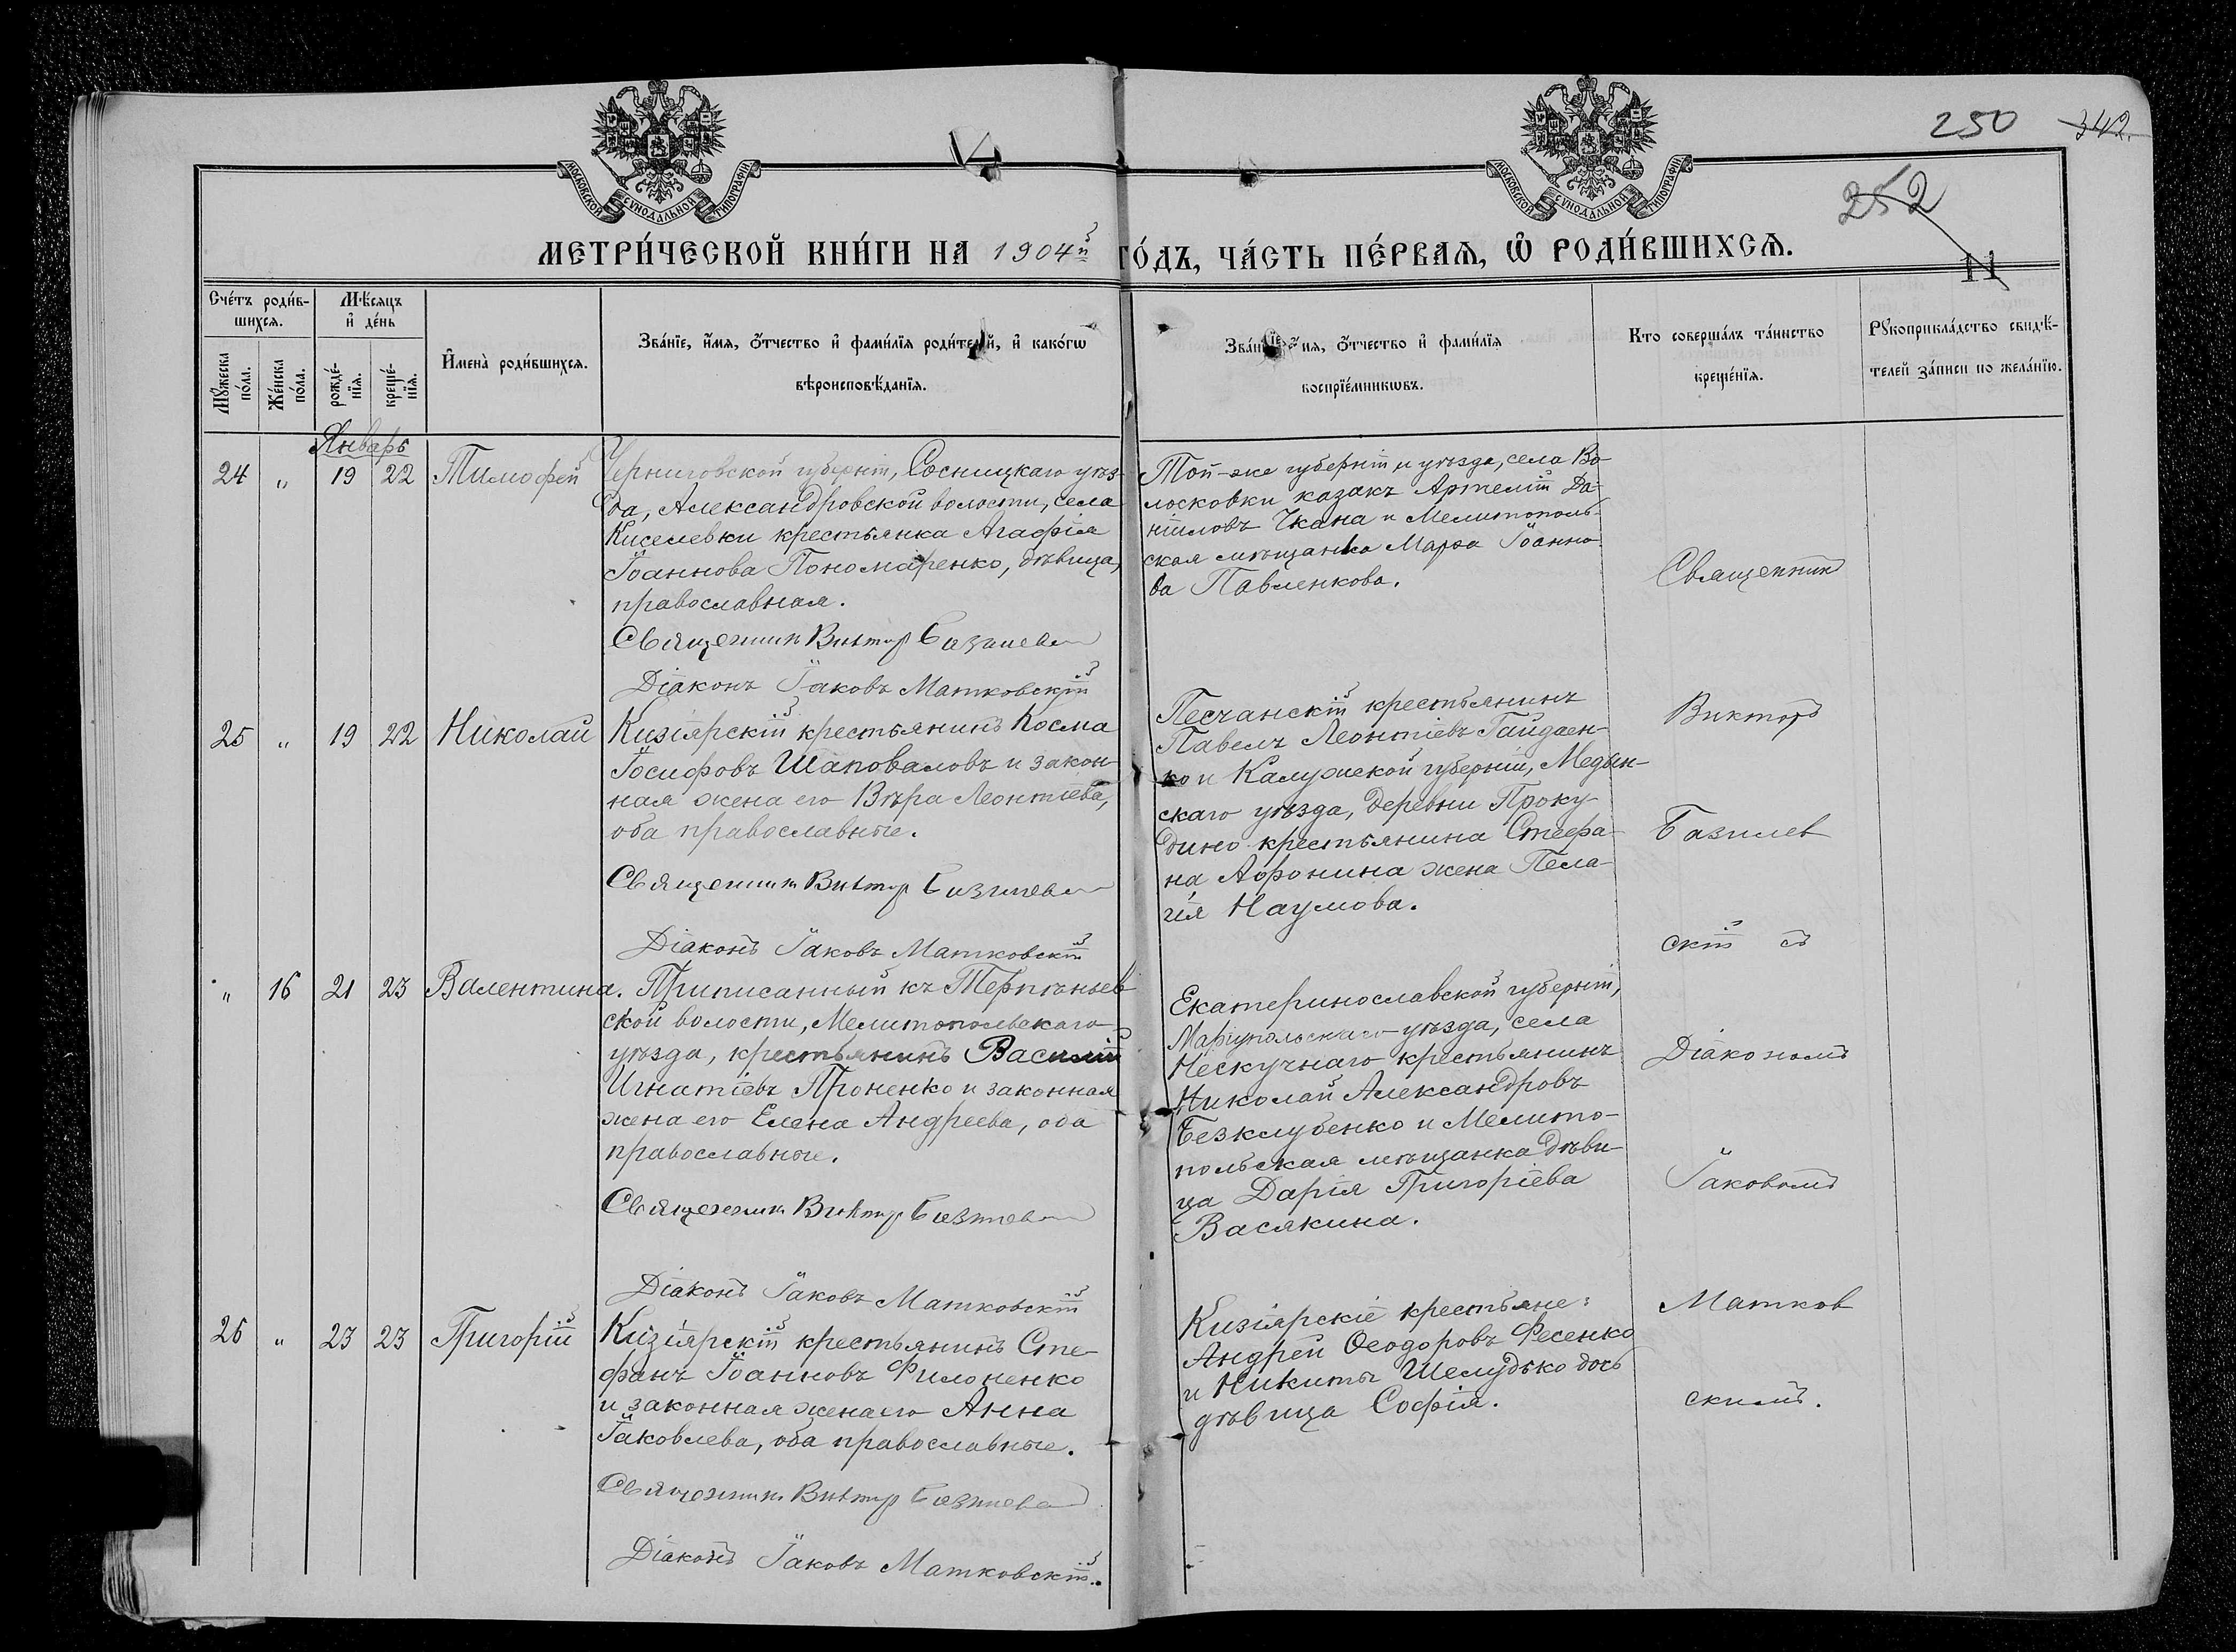 250 342.
252
11
МОСКОВСКОЙ СѴНОДАЛЬНОЙ ТИПОГРАФІИ
МОСКОВСКОЙ СѴНОДАЛЬНОЙ ТИПОГРАФІИ
МЕТРИ́ЧЕСКОЙ КНИ́ГИ НА 1904й ГО́ДЪ, ЧА́СТЬ ПЕ́РВАѦ, Ѽ РОДИ́ВШИХСѦ.
Сче́тъ роди́в-
шихсѧ.
Мꙋжеска по́ла.
Же́нска по́ла.
Мѣ́сяцъ
и҆ де́нь
рожде́-
нїѧ.
креще́-
нїѧ.
И҆мена̀ роди́вшихсѧ.
Зва́нїе, и҆́мѧ, ѻ҆́тчество и҆ фами́лїѧ роди́телей, и҆ како́гѡ
вѣроисповѣ́данїѧ.
Зва́нїе, и҆́мѧ, ѻ҆́тчество и҆ фами́лїѧ
воспрїе́мникѡвъ.
Кто соверша́лъ та́инство
креще́нїѧ.
Рꙋкоприкла́дство свидѣ́-
телей за́писи по жела́нїю.
Январь
24 " 19 22 Тимофей
Черниговской губерніи, Сосницкаго уѣз-
да, Александровской волости, села
Киселевки крестьянка Агафія
Іоаннова Пономаренко, дѣвица,
православная.
Священникъ Викторъ Базилев
Діаконъ Іаковъ Матковскій
Той-же губерніи и уѣзда, села Во-
лосковки казакъ Артемій Да-
ніиловъ Чкана и Мелитополь-
ская мѣщанка Марѳа Іоанно-
ва Павленкова.
25 " 19 22 Николай
Кизіярскій крестьянинъ Косма
Іосифовъ Шаповаловъ и закон-
ная жена его Вѣра Леонтіева,
оба православные.
Священникъ Викторъ Базилев
Діаконъ Іаковъ Матковскій
Песчанскій крестьянинъ
Павелъ Леонтіевъ Гайдаен-
ко и Калужской губерніи, Медын-
скаго уѣзда, деревни Проку-
дино крестьянина Стефа-
на Афонина жена Пела-
гія Наумова.
" 16 21 23 Валентина.
Приписанный къ Терпѣньев
ской волости, Мелитопольскаго
уѣзда, крестьянинъ Василій
Игнатіевъ Проненко и законная
жена его Елена Андреева, оба
православные.
Священникъ Викторъ Базилев
Діаконъ Іаковъ Матковскій
Екатеринославской губерніи,
Маріупольскаго уѣзда, села
Нескучнаго крестьянинъ
Николай Александровъ
Безклубенко и Мелито-
польская мѣщанка дѣви-
ца Дарія Григоріева
Васякина.
26 " 23 23 Григорій
Кизіярскій крестьянинъ Сте-
фанъ Іоанновъ Филоненко
и законная жена его Анна
Іаковлева, оба православные.
Священникъ Викторъ Базилев
Діаконъ Іаковъ Матковскій.
Кизіярскіе крестьяне:
Андрей Ѳеодоровъ Фесенко
и Никиты Шелудько дочь
дѣвица Софія.
Священникъ
Викторъ
Базилев
скій съ
Діакономъ
Іаковомъ
Матков
скимъ.